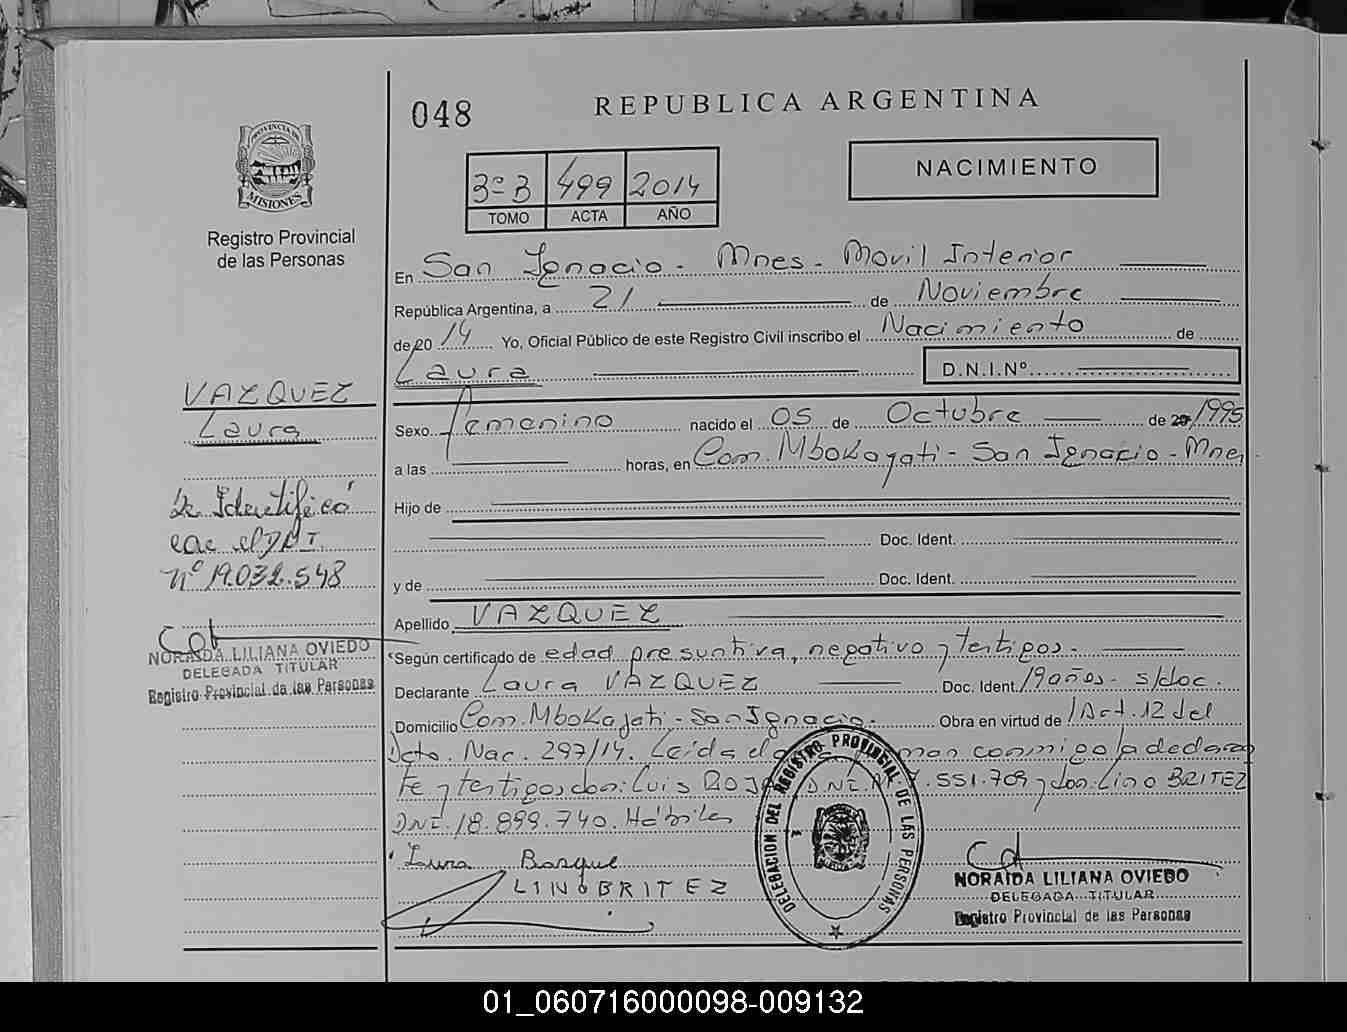 048
REPUBLICA ARGENTINA
PROVINCIA DE
MISIONES
Registro Provincial
de las Personas
3º B 499 2014
TOMO ACTA AÑO
NACIMIENTO
En San Ignacio - Mnes - Movil Interior
República Argentina, a 21 de Noviembre
de 20 14 Yo, Oficial Público de este Registro Civil inscribo el Nacimiento de
Laura
D.N.I.Nº
VAZQUEZ
Laura
Sexo femenino nacido el 05 de Octubre de 20 1995
a las horas, en Com. Mbokajati - San Ignacio - Mnes.
Hijo de
Doc. Ident.
y de Doc. Ident.
Apellido VAZQUEZ
Se Identificó
con el DNI.
Nº 19.032.548
NORAIDA LILIANA OVIEDO
DELEGADA TITULAR
Registro Provincial de las Personas
Según certificado de edad presuntiva, negativo y testigos.
Declarante Laura VAZQUEZ Doc. Ident. 19 años - s/doc.
Domicilio Com. Mbokajati - San Ignacio. Obra en virtud de Art. 12 del
Dcto. Nac. 297/14. Leida el man conmigo la declaran
te y testigos don: Luis ROJA DNI. 7.551.709 y don: Lino BRITEZ
DNI. 18.899.740. Hábiles
Basque
LINO BRITEZ
DELEGACION DEL REGISTRO PROVINCIAL DE LAS PERSONAS
NORAIDA LILIANA OVIEDO
DELEGADA TITULAR
Registro Provincial de las Personas
01_060716000098-009132